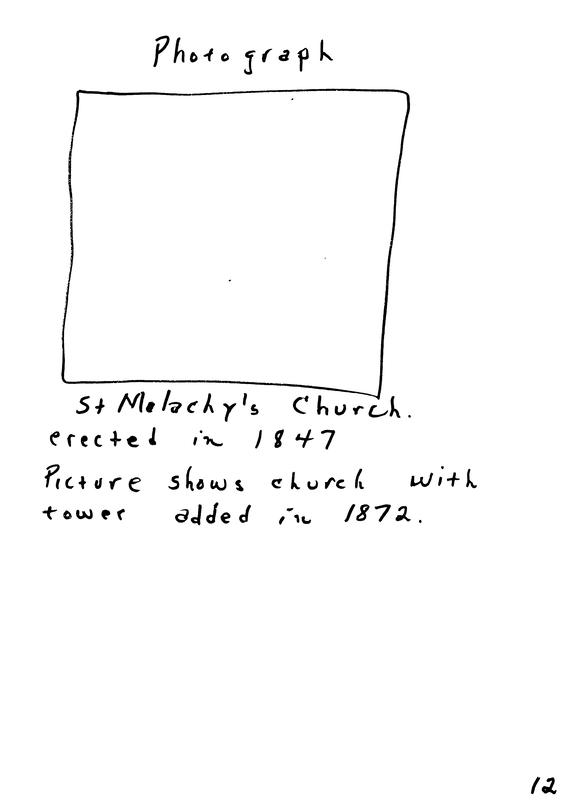 Photograph
St Malachy's Church.
erected in 1847
Picture shows church with
tower added in 1872.
12